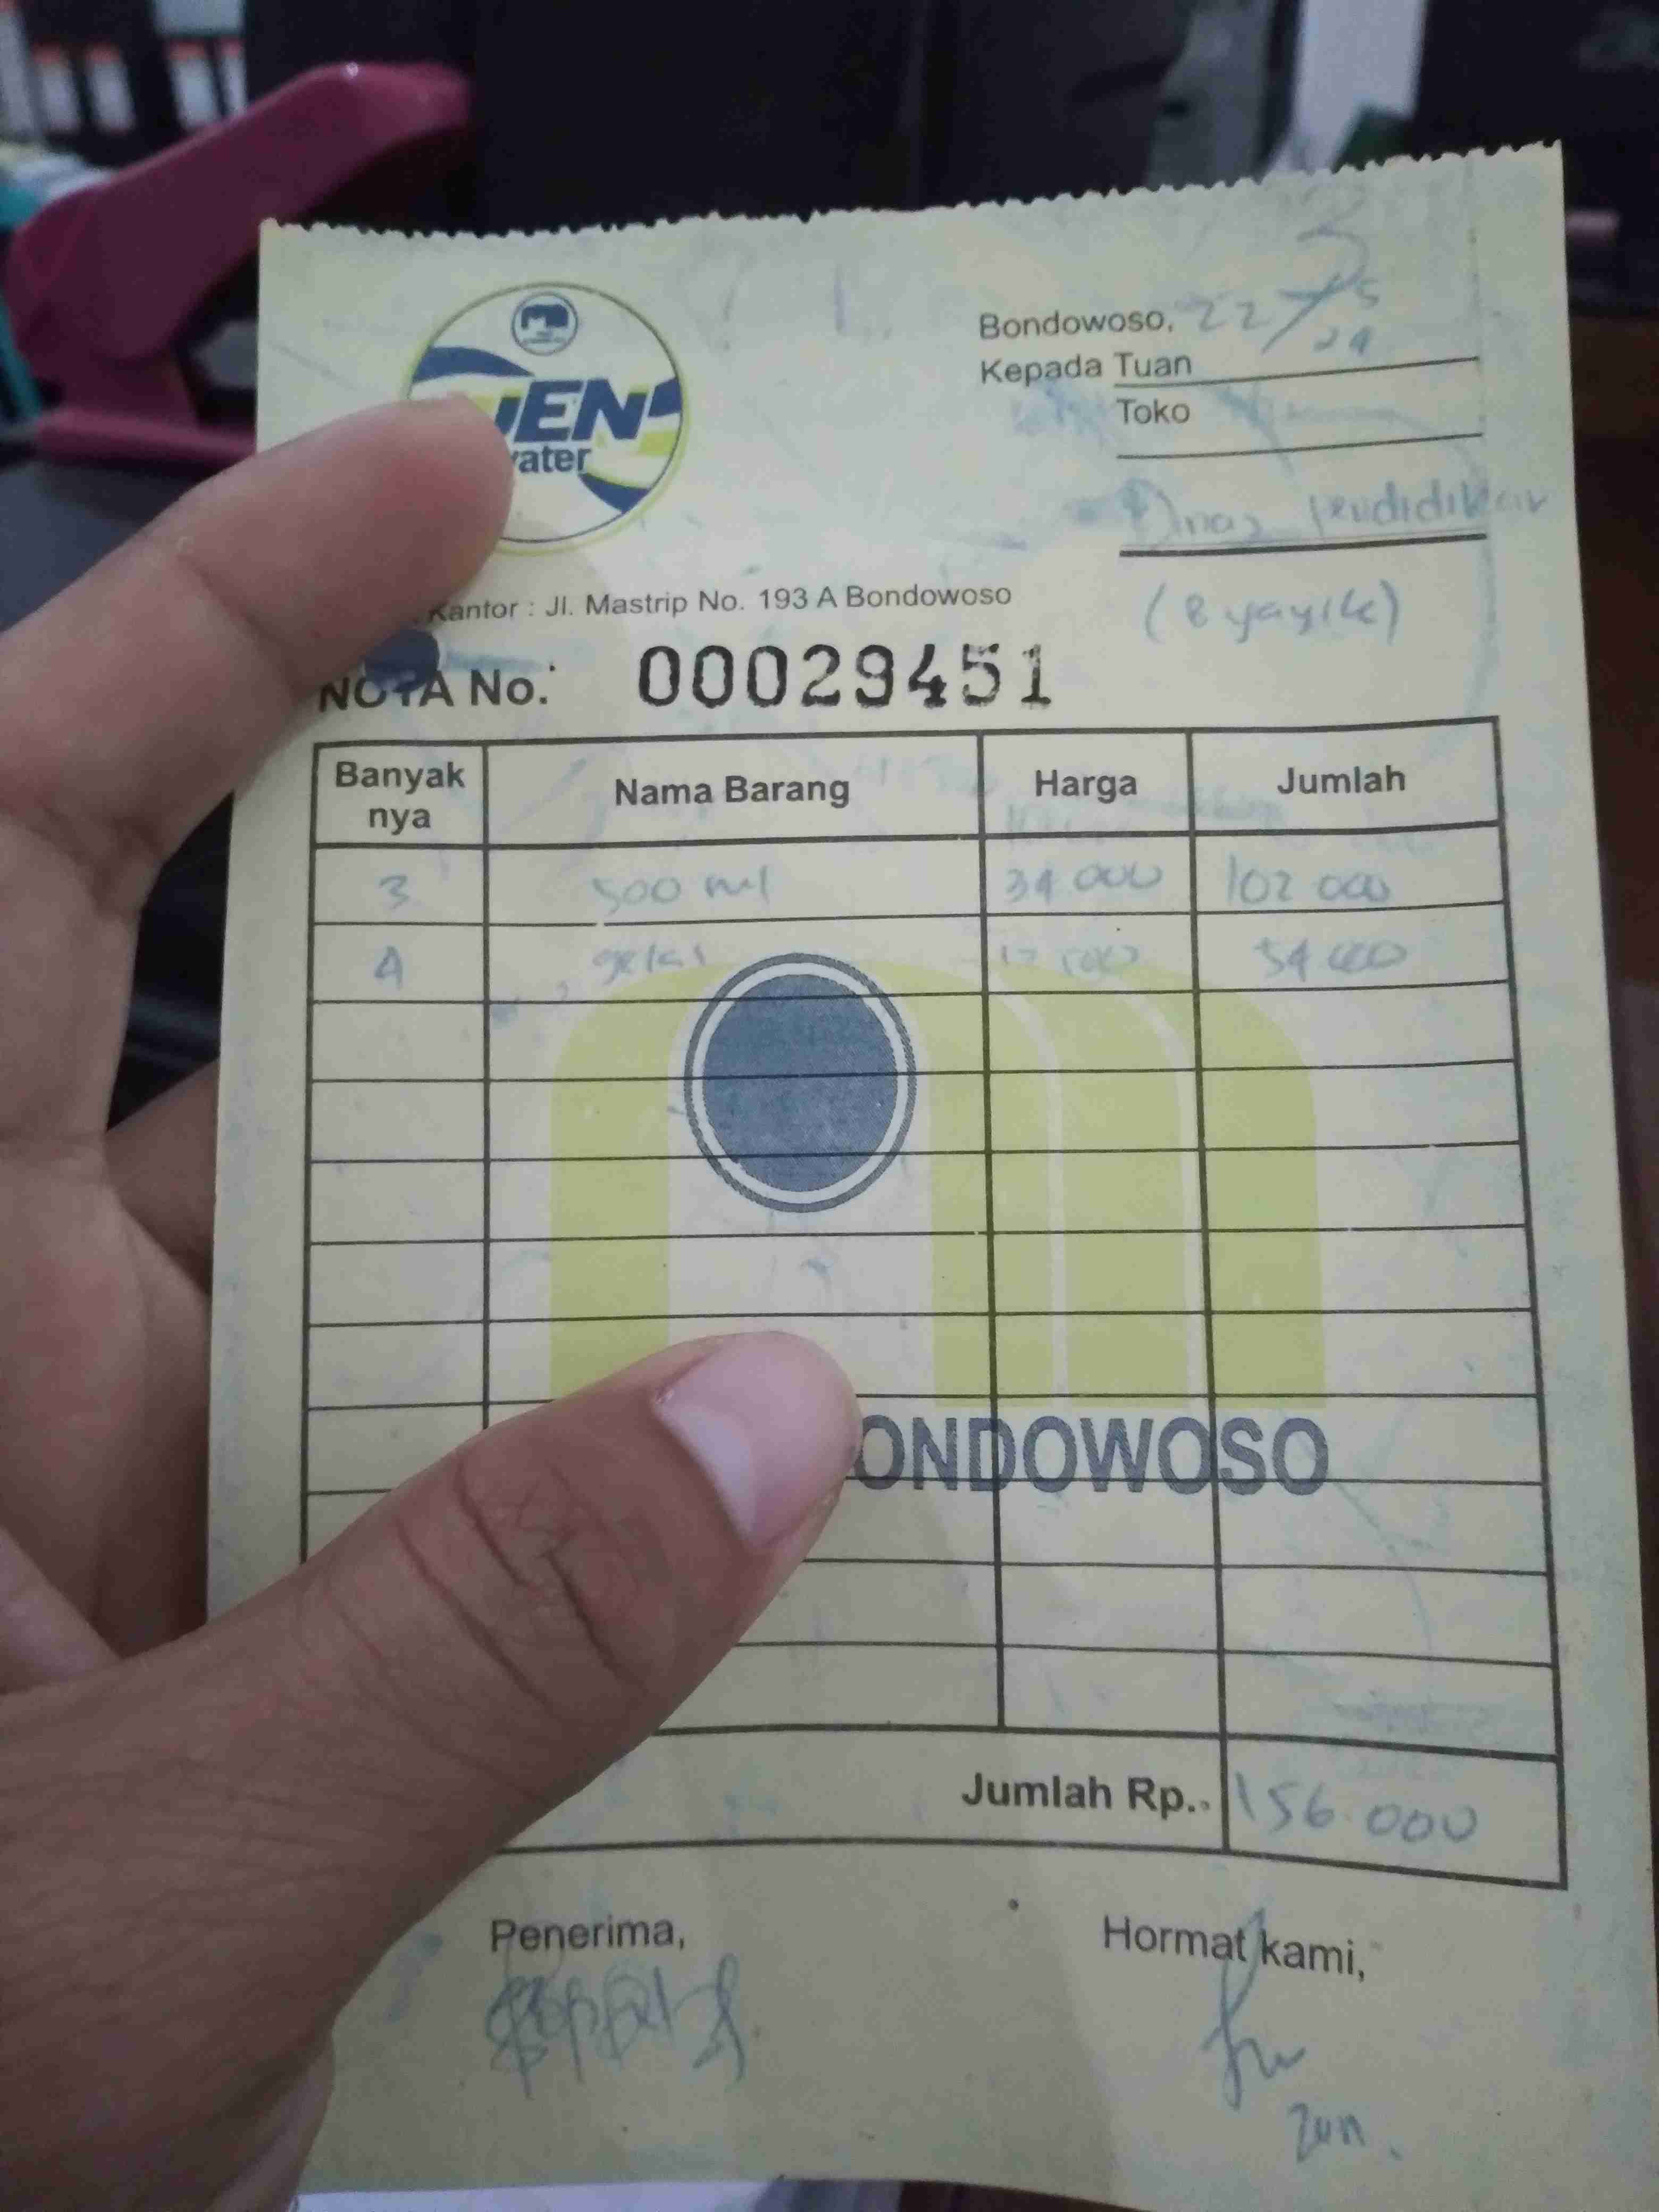 JEN
water
Bondowoso, 22/5 24
Kepada Tuan
Toko
Dinas pendidikan
Kantor : Jl. Mastrip No. 193 A Bondowoso
NOTA No. : 00029451
Banyak nya Nama Barang Harga Jumlah
3 500 ml 34 000 102 000
4 gelas 54 000
ONDOWOSO
Jumlah Rp. 156.000
Penerima, Hormat kami,